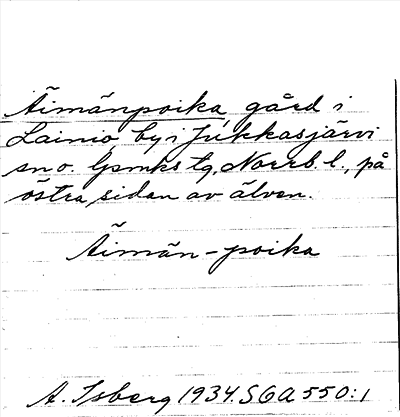 Äimänpoika, gård i
Lainio, by i Jukkasjärvi
sn o. lpmks tg, Norrb. l., på
östra sidan av älven.
Äimän-poika
A. Isberg 1934. SGA 550:1